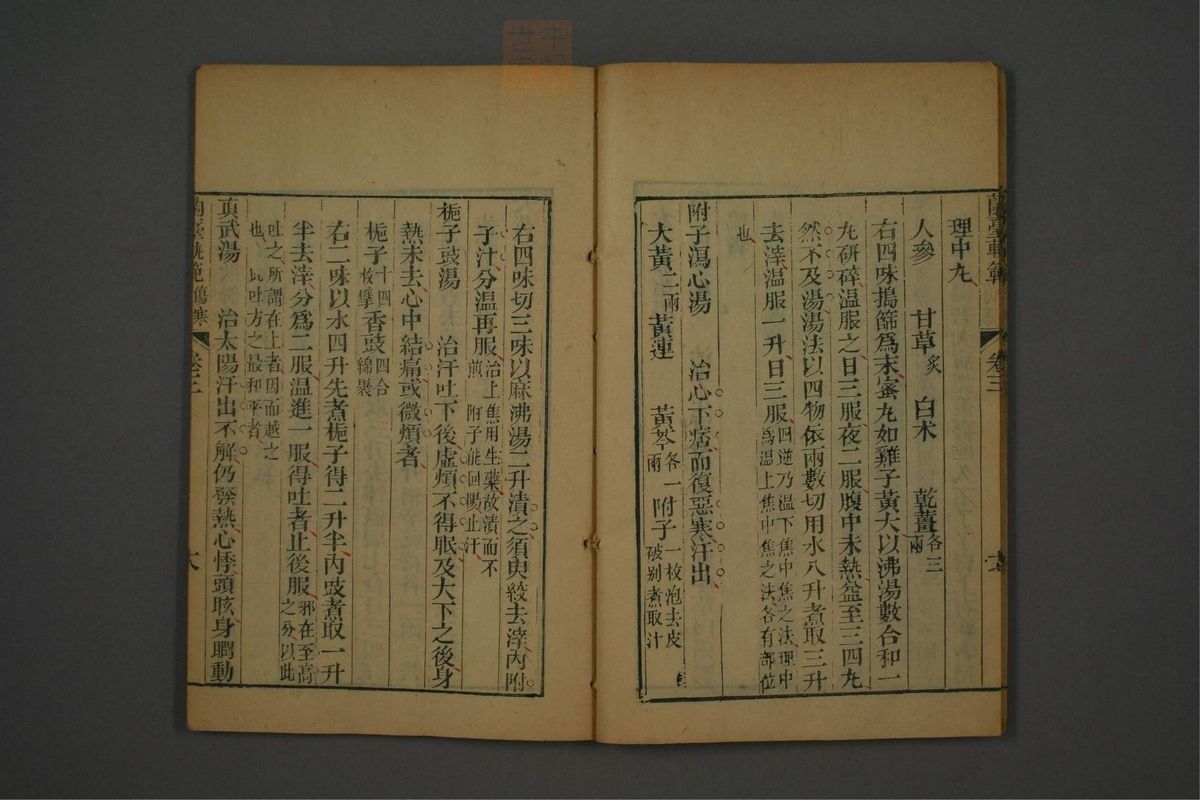 蘭臺軌範 卷三
理中丸
人參 甘草炙 白朮 乾薑各三兩
右四味搗篩爲末蜜丸如雞子黃大以沸湯數合和一
丸研碎溫服之日三服夜二服腹中未熱益至三四丸
然不及湯湯法以四物依兩數切用水八升煮取三升
去滓溫服一升日三服四逆乃溫下焦之法理中爲溫上焦中焦之法各有部位
也
附子瀉心湯 治心下痞而復惡寒汗出
大黃二兩 黃連 黃芩各一兩 附子一枚炮去皮破别煮取汁
右四味切三味以麻沸湯二升漬之須臾絞去滓內附
子汁分溫再服治上焦用生藥故漬而不煎附子能回陽止汗
梔子豉湯 治汗吐下後虛煩不得眠及大下之後身
熱未去心中結痛或微煩者
梔子十四枚擘 香豉四合綿裹
右二味以水四升先煮梔子得二升半內豉煮取一升
半去滓分爲二服溫進一服得吐者止後服邪在至高之分以此
吐之所謂在上者因而越之也此吐方之最和平者
真武湯 治太陽汗出不解仍發熱心悸頭眩身瞤動
蘭臺軌範 傷寒 卷三